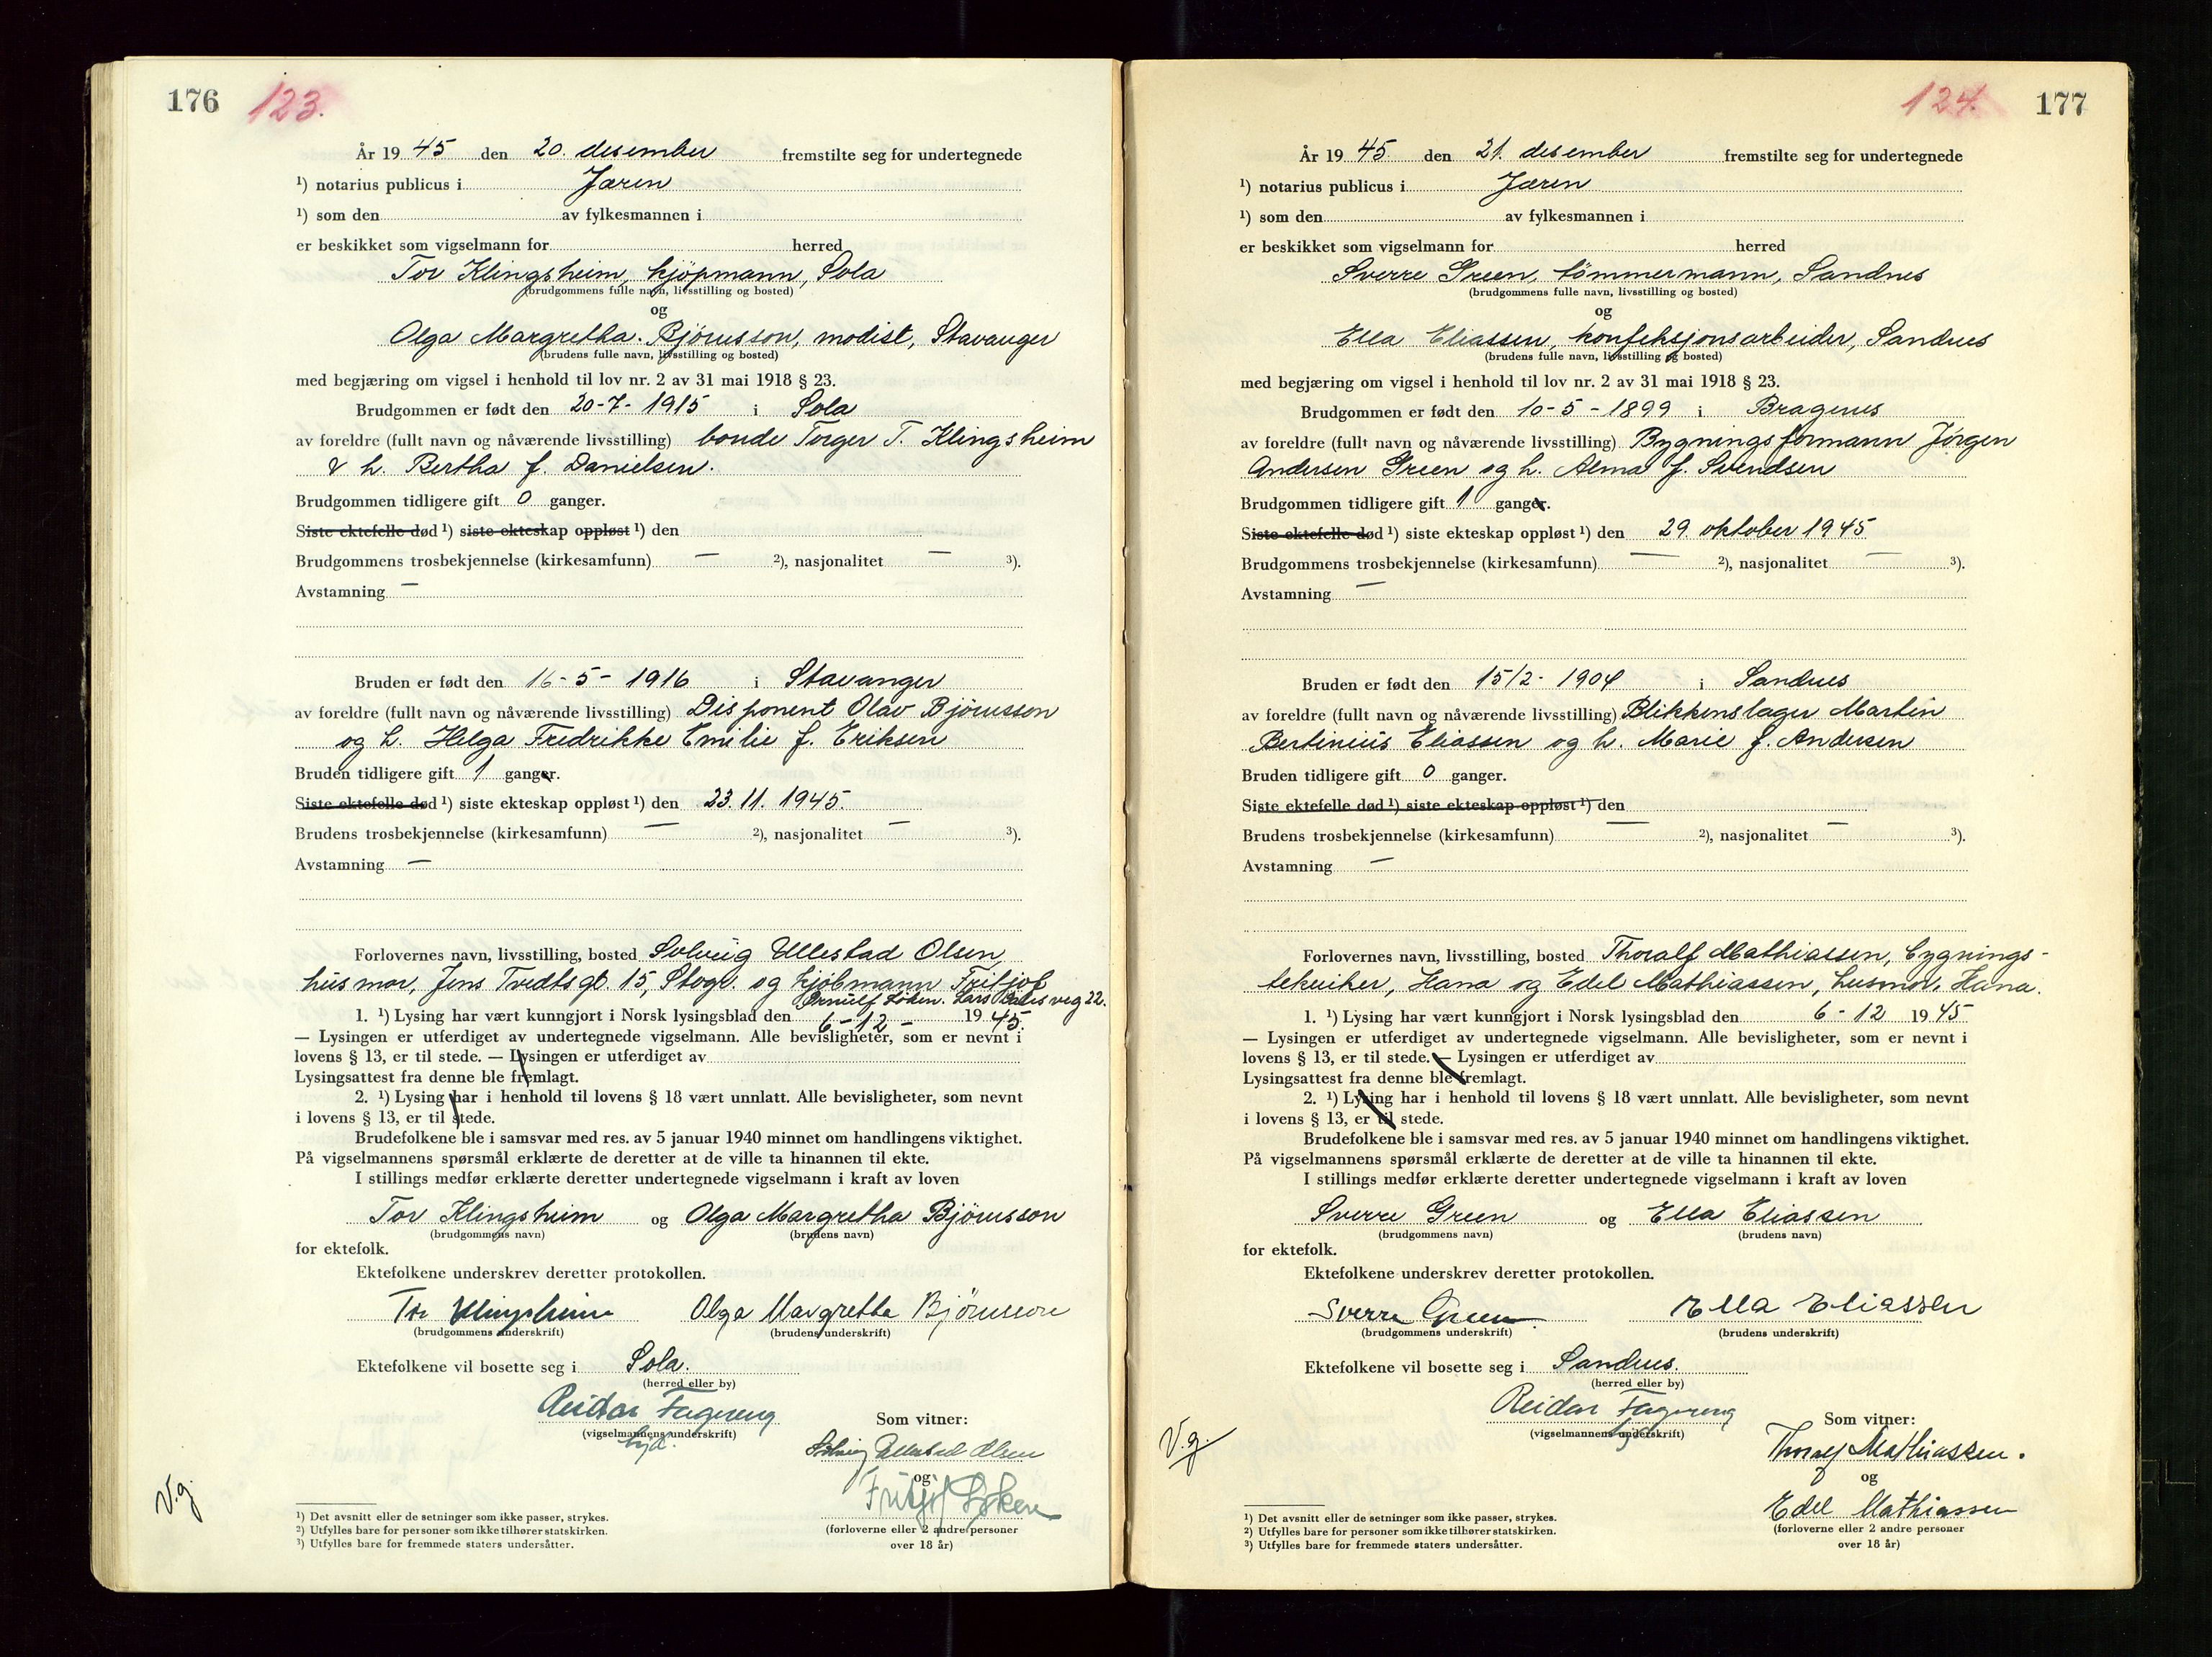 176 123.
År 19 45 den 20. desember fremstilte seg for undertegnede
¹) notarius publicus i Jæren
¹) som den av fylkesmannen i
er beskikket som vigselmann for herred
Tor Klingsheim, kjöpmann, Sola
(brudgommens fulle navn, livsstilling og bosted)
og
Olga Margretha Björnsson, modist, Stavanger
(brudens fulle navn, livsstilling og bosted)
med begjæring om vigsel i henhold til lov nr. 2 av 31 mai 1918 § 23.
Brudgommen er født den 20-7- 1915 i Sola
av foreldre (fullt navn og nåværende livsstilling) bonde Torger T. Klingsheim
& h. Bertha f. Danielsen.
Brudgommen tidligere gift 0 ganger.
Siste ektefelle død ¹) siste ekteskap oppløst ¹) den
Brudgommens trosbekjennelse (kirkesamfunn) — ²), nasjonalitet — ³).
Avstamning —
Bruden er født den 16-5- 1916 i Stavanger
av foreldre (fullt navn og nåværende livsstilling) Disponent Olav Björnsson
og h. Helga Fredrikke Emilie f. Eriksen
Bruden tidligere gift 1 ganger.
Siste ektefelle død ¹) siste ekteskap oppløst ¹) den 23. 11. 1945.
Brudens trosbekjennelse (kirkesamfunn) — ²), nasjonalitet — ³).
Avstamning —
Forlovernes navn, livsstilling, bosted Solveig Ullestad Olsen,
husmor, Jens Tvedtsgt. 15, Stvgr. og kjöbmann Fritjof
Löken. Lars veg 22.
1. ¹) Lysing har vært kunngjort i Norsk lysingsblad den 6-12- 19 45.
— Lysingen er utferdiget av undertegnede vigselmann. Alle bevisligheter, som er nevnt i
lovens § 13, er til stede. — Lysingen er utferdiget av
Lysingsattest fra denne ble fremlagt.
2. ¹) Lysing har i henhold til lovens § 18 vært unnlatt. Alle bevisligheter, som nevnt
i lovens § 13, er til stede.
Brudefolkene ble i samsvar med res. av 5 januar 1940 minnet om handlingens viktighet.
På vigselmannens spørsmål erklærte de deretter at de ville ta hinannen til ekte.
I stillings medfør erklærte deretter undertegnede vigselmann i kraft av loven
Tor Klingsheim og Olga Margretha Björnsson
(brudgommens navn) (brudens navn)
for ektefolk.
Ektefolkene underskrev deretter protokollen.
Tor Klingsheim Olga Margretha Björnsson
(brudgommens underskrift) (brudens underskrift)
Ektefolkene vil bosette seg i Sola.
(herred eller by)
Reidar Fagereng
(vigselmannens underskrift)
Som vitner:
Solveig Ullestad Olsen
og
Fritjof Löken
(forloverne eller 2 andre personer
over 18 år)
V.g.
¹) Det avsnitt eller de setninger som ikke passer, strykes.
²) Utfylles bare for personer som ikke tilhører statskirken.
³) Utfylles bare for fremmede staters undersåtter.
124. 177
År 19 45. den 21. desember fremstilte seg for undertegnede
¹) notarius publicus i Jæren
¹) som den av fylkesmannen i
er beskikket som vigselmann for herred
Sverre Green, tömmermann, Sandnes
(brudgommens fulle navn, livsstilling og bosted)
og
Ella Eliassen, konfeksjonsarbeider, Sandnes
(brudens fulle navn, livsstilling og bosted)
med begjæring om vigsel i henhold til lov nr. 2 av 31 mai 1918 § 23.
Brudgommen er født den 10-5-1899 i Bragenes
av foreldre (fullt navn og nåværende livsstilling) Bygningsformann Jörgen
Andersen Green og h. Alma f. Svendsen
Brudgommen tidligere gift 1 ganger.
Siste ektefelle død ¹) siste ekteskap oppløst ¹) den 29. oktober 1945
Brudgommens trosbekjennelse (kirkesamfunn) — ²), nasjonalitet — ³).
Avstamning —
Bruden er født den 15/2- 1904 i Sandnes
av foreldre (fullt navn og nåværende livsstilling) Blikkenslager Martin
Bertinius Eliassen og h. Marie f. Andersen
Bruden tidligere gift 0 ganger.
Siste ektefelle død ¹) siste ekteskap oppløst ¹) den
Brudens trosbekjennelse (kirkesamfunn) — ²), nasjonalitet — ³).
Avstamning —
Forlovernes navn, livsstilling, bosted Thoralf Mathiassen, bygnings-
tekniker, Hana og Edel Mathiassen, husmor, Hana.
1. ¹) Lysing har vært kunngjort i Norsk lysingsblad den 6-12 19 45
— Lysingen er utferdiget av undertegnede vigselmann. Alle bevisligheter, som er nevnt i
lovens § 13, er til stede. — Lysingen er utferdiget av
Lysingsattest fra denne ble fremlagt.
2. ¹) Lysing har i henhold til lovens § 18 vært unnlatt. Alle bevisligheter, som nevnt
i lovens § 13, er til stede.
Brudefolkene ble i samsvar med res. av 5 januar 1940 minnet om handlingens viktighet.
På vigselmannens spørsmål erklærte de deretter at de ville ta hinannen til ekte.
I stillings medfør erklærte deretter undertegnede vigselmann i kraft av loven
Sverre Green og Ella Eliassen
(brudgommens navn) (brudens navn)
for ektefolk.
Ektefolkene underskrev deretter protokollen.
Sverre Green Ella Eliassen
(brudgommens underskrift) (brudens underskrift)
Ektefolkene vil bosette seg i Sandnes.
(herred eller by)
Reidar Fagereng
(vigselmannens underskrift)
V.g.
Som vitner:
Thoralf Mathiassen.
og
Edel Mathiassen
(forloverne eller 2 andre personer
over 18 år)
¹) Det avsnitt eller de setninger som ikke passer, strykes.
²) Utfylles bare for personer som ikke tilhører statskirken.
³) Utfylles bare for fremmede staters undersåtter.